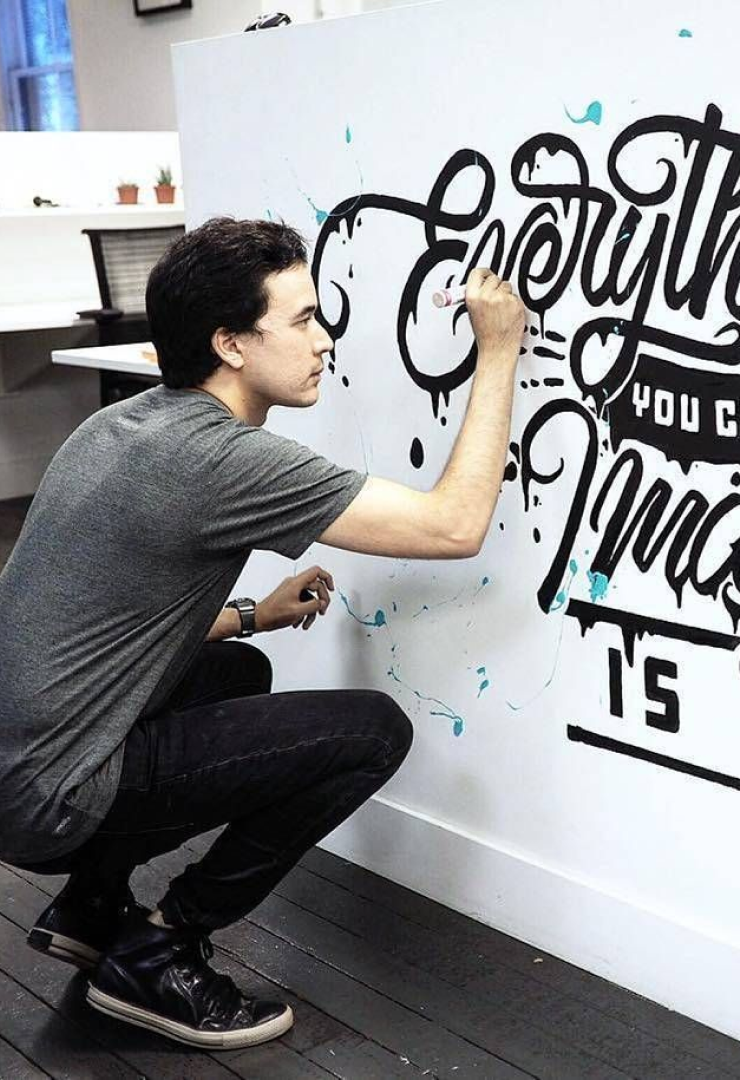 Everyth
YOU C
Ima
IS